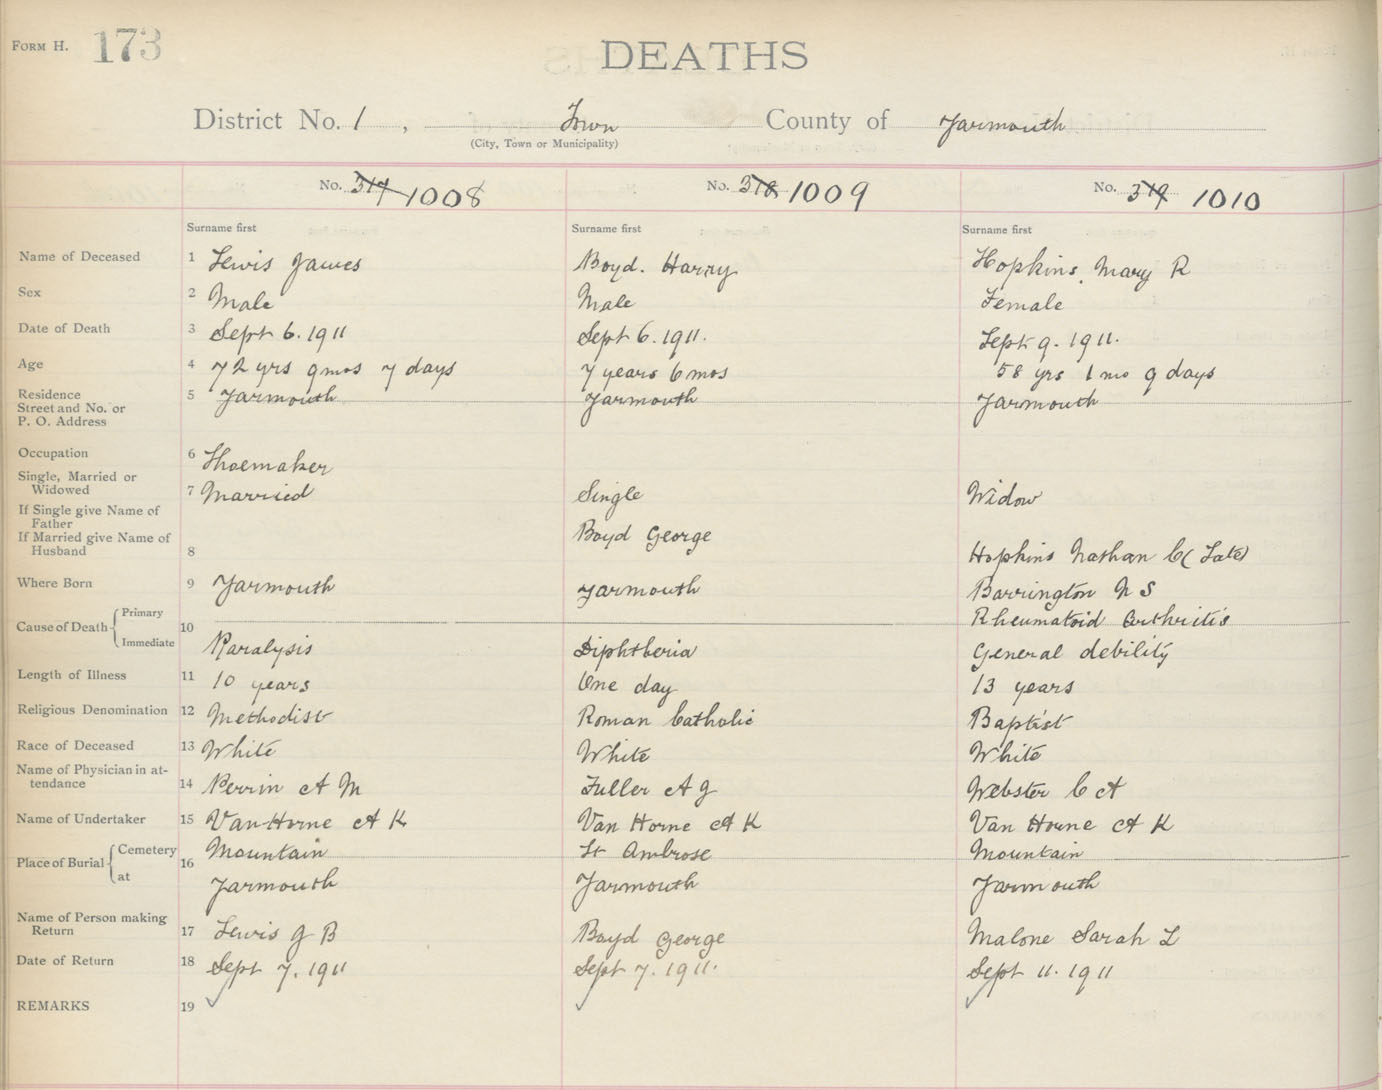 FORM H. 173
DEATHS
District No. 1, Town County of Yarmouth
(City, Town or Municipality)
No. 317 1008 No. 318 1009 No. 319 1010
Surname first Surname first Surname first
Name of Deceased 1 Lewis James Boyd. Harry Hopkins, Mary R
Sex 2 Male Male Female
Date of Death 3 Sept 6. 1911 Sept 6. 1911. Sept 9. 1911.
Age 4 72 yrs 9 mos 7 days 7 years 6 mos 58 yrs 1 mo 9 days
Residence 5 Yarmouth Yarmouth Yarmouth
Street and No. or
P. O. Address
Occupation 6 Shoemaker
Single, Married or
Widowed 7 Married Single Widow
If Single give Name of
Father Boyd George
If Married give Name of
Husband 8 Hopkins Nathan C (Late)
Where Born 9 Yarmouth Yarmouth Barrington N S
Primary Rheumatoid Arthritis
Cause of Death 10
Immediate Paralysis Diphtheria General debility
Length of Illness 11 10 years One day 13 years
Religious Denomination 12 Methodist Roman Catholic Baptist
Race of Deceased 13 White White White
Name of Physician in at-
tendance 14 Perrin A M Fuller A J Webster C A
Name of Undertaker 15 Van Horne A K Van Horne A K Van Horne A K
Cemetery Mountain St Ambrose Mountain
Place of Burial 16
at Yarmouth Yarmouth Yarmouth
Name of Person making
Return 17 Lewis J B Boyd George Malone Sarah L
Date of Return 18 Sept 7. 1911 Sept 7. 1911. Sept 11. 1911
REMARKS 19